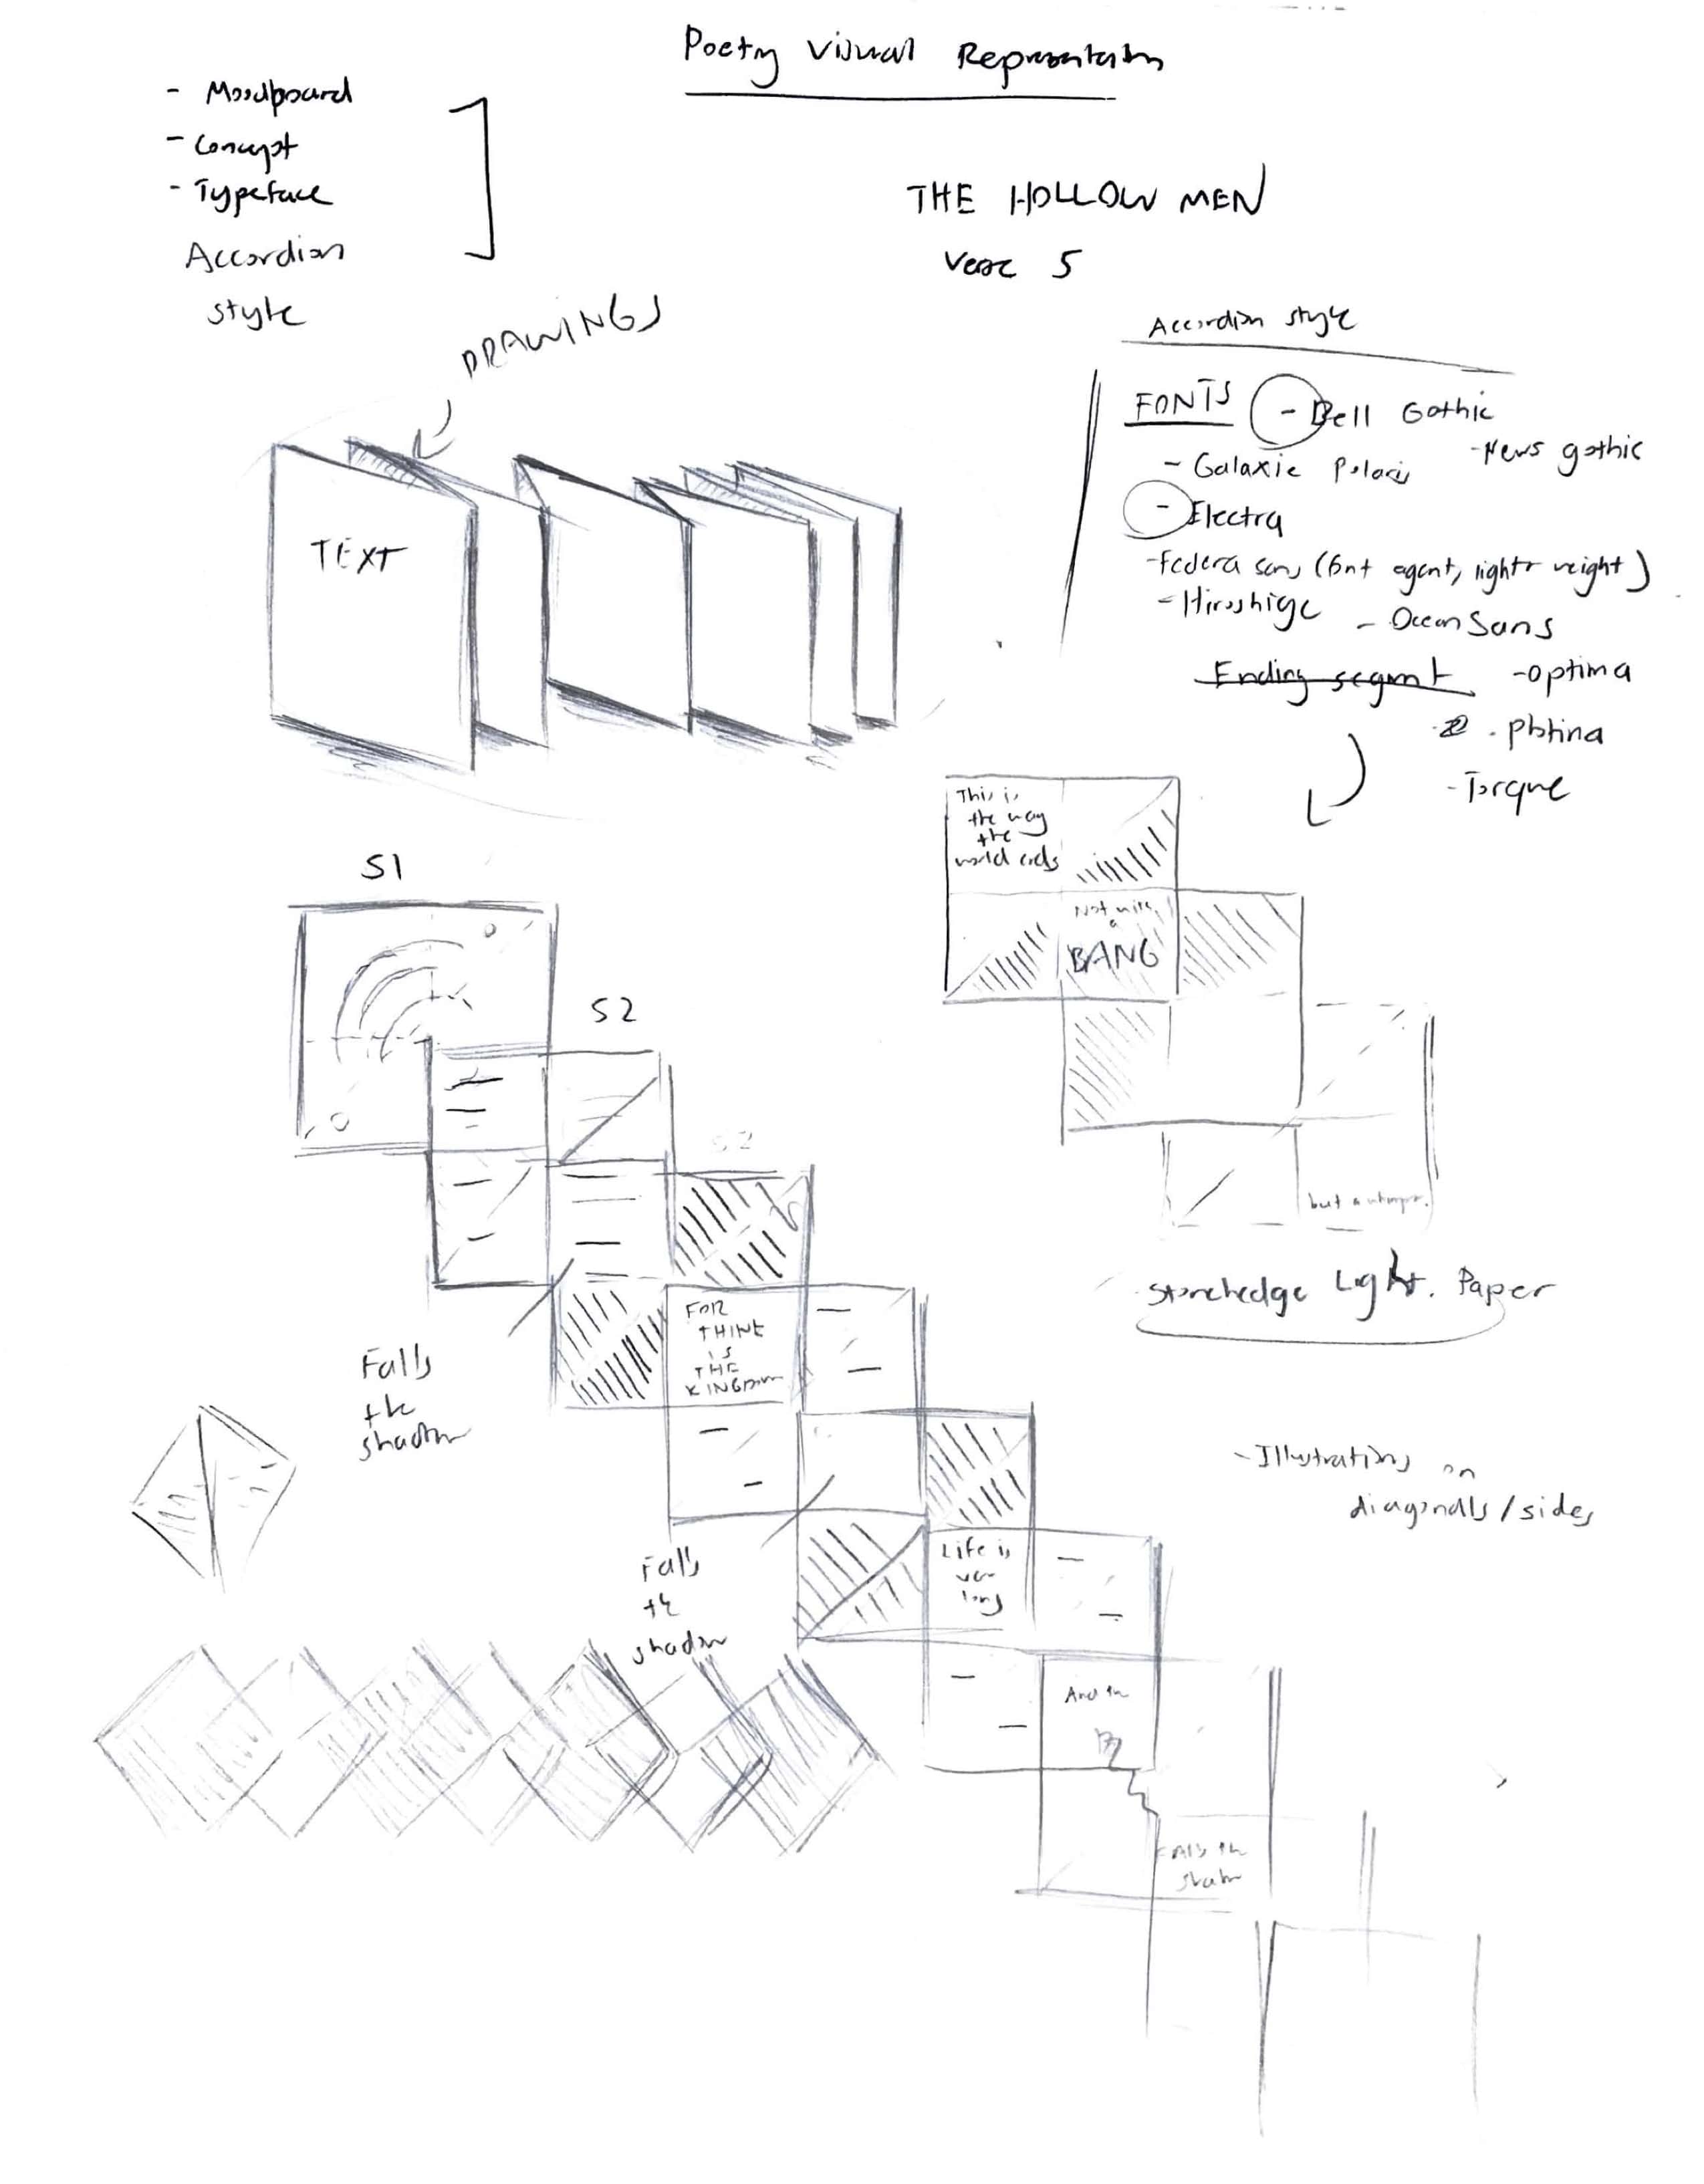 Poetry Visual Representation
- Moodboard
- Concept
- Typeface
Accordion
style
THE HOLLOW MEN
Verse 5
DRAWINGS
TEXT
Accordion style
FONTS
- Bell Gothic
- News gothic
- Galaxie Polaris
- Electra
- Federa sans (font agent, lighter weight)
- Hiroshige
- Ocean Sans
Ending segment
- optima
- Torque
This is
the way
the
world ends
Not with
a
BANG
but a whimper.
Stonehedge Light. Paper
S1
S2
S2
Falls
the
shadow
FOR
THINE
IS
THE
KINGDOM
- Illustrations on
diagonalls/sides
Falls
the
shadow
Life is
very
long
And the
Falls the
shadow